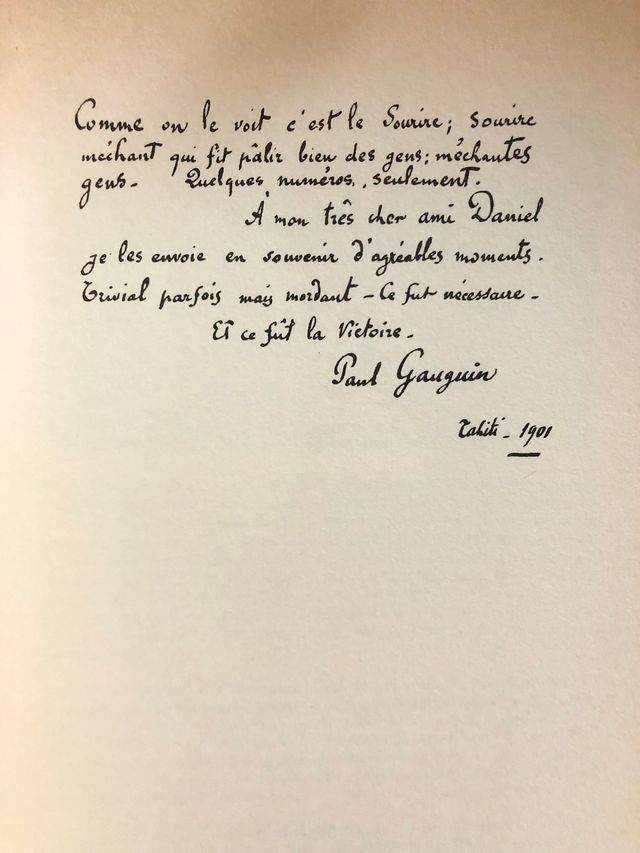 Comme on le voit c'est le Sourire; sourire
méchant qui fit pâlir bien des gens; méchantes
gens - Quelques numéros, seulement.
À mon três cher ami Daniel
je les envoie en souvenir d'agréables moments.
Trivial parfois mais mordant - Ce fut nécessaire -
Et ce fût la Victoire.
Paul Gauguin
Tahiti - 1901